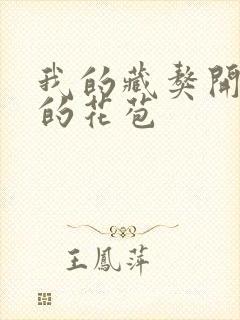 我的藏獒開
的花苞
王鳳萍